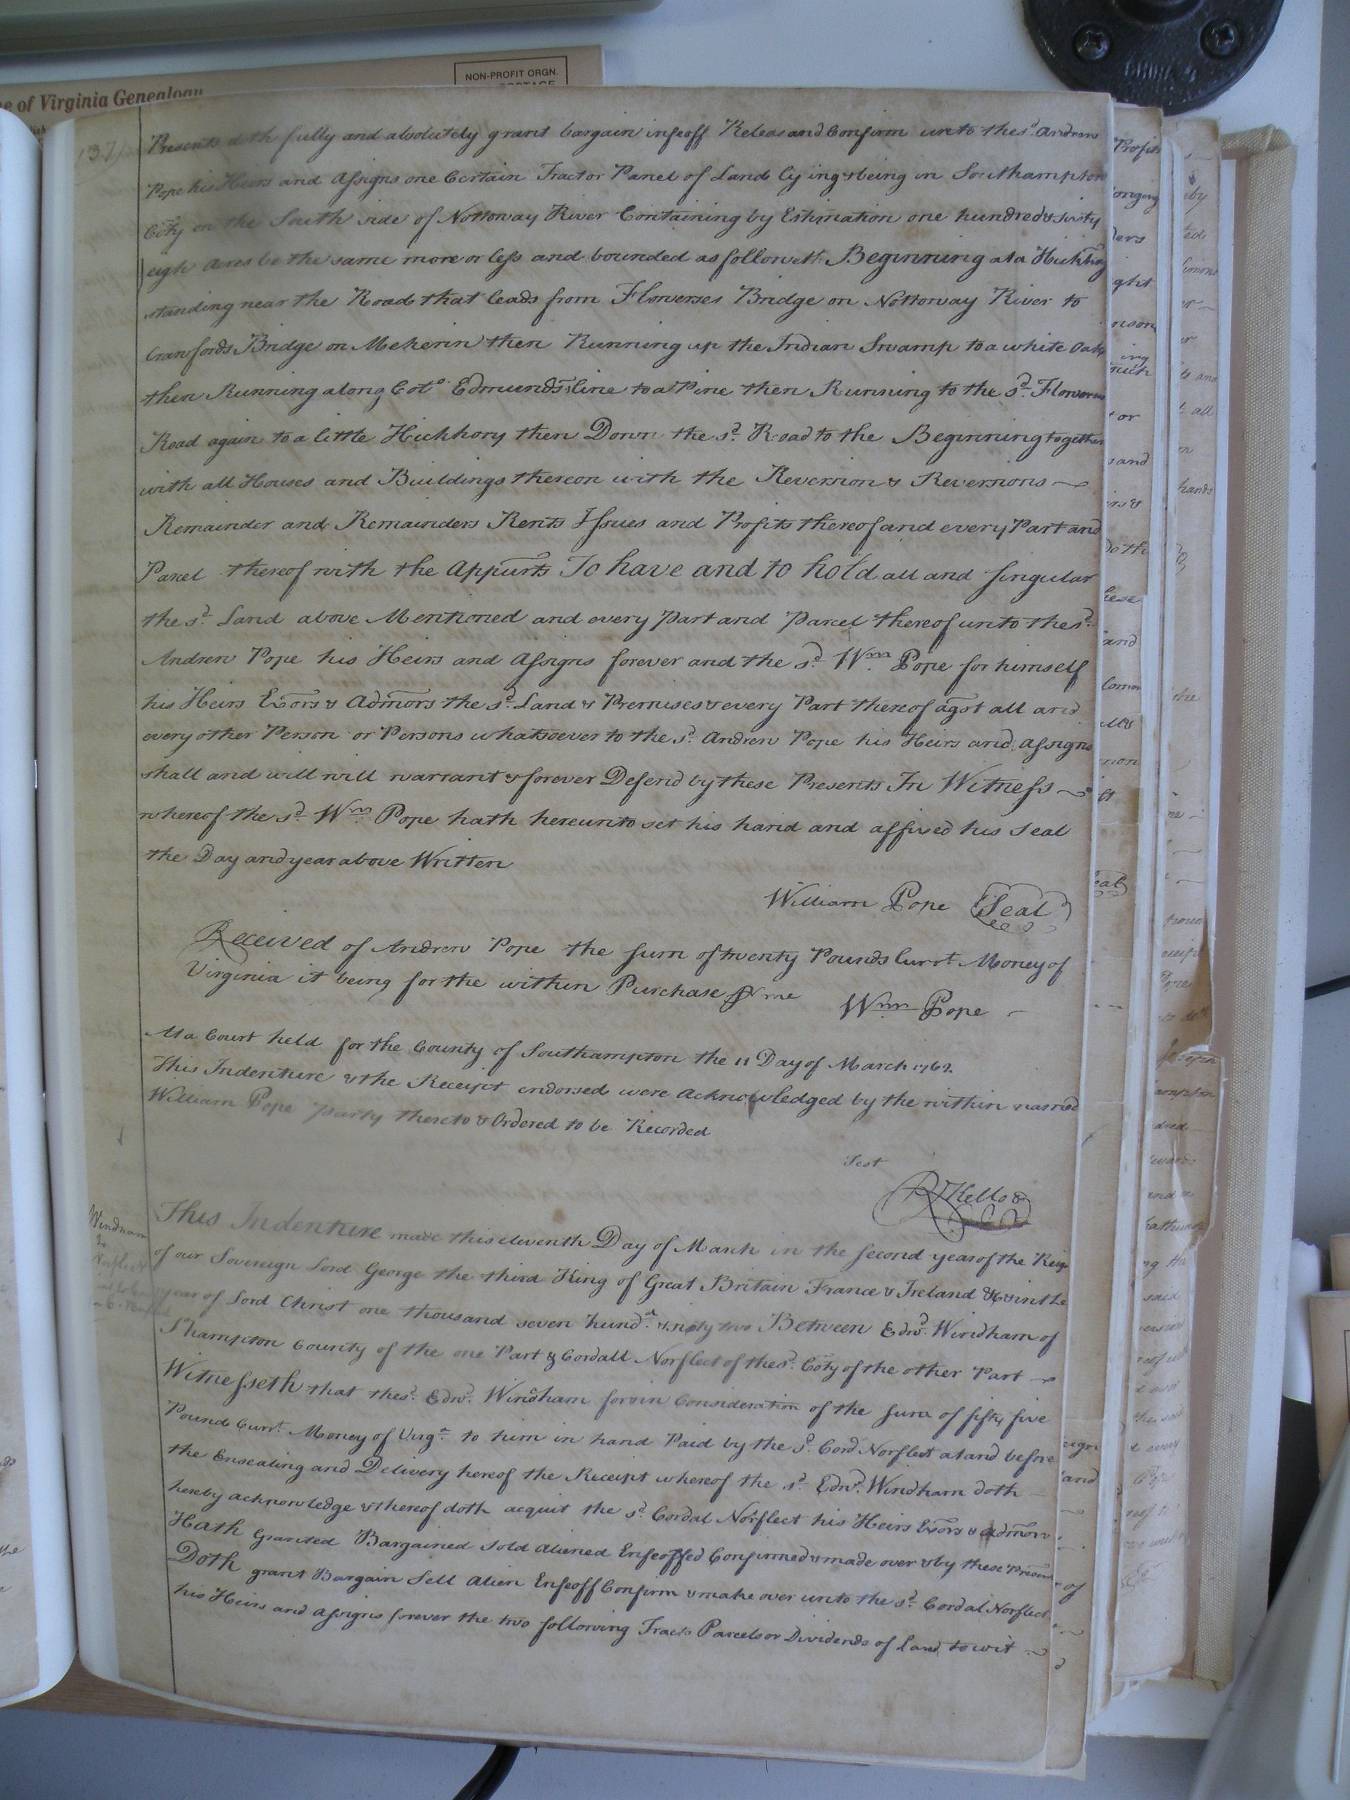 e of Virginia Genealogy
NON-PROFIT ORGN.
137
Presents doth fully and absolutely grant bargain infeoff Releas and Confirm unto the sd. Andrew
Pope his Heirs and Assigns one Certain Tract or Parcel of Land lying & being in Southampton
Coty on the South side of Nottoway River Containing by Estimation one hundred & sixty
eigh Acres be the same more or less and bounded as followeth Beginning at a Hickhory
standing near the Road that leads from Flowerses Bridge on Nottoway River to
Crawfords Bridge on Meherin then Running up the Indian Swamp to a white Oak
then Running along Colo. Edmunds's line to a Pine then Running to the sd. Flowers
Road again to a little Hickhory then Down the sd. Road to the Beginning together
with all Houses and Buildings thereon with the Reversion & Reversions
Remainder and Remainders Rents Issues and Profits thereof and every Part and
Parcel thereof with the Appurts To have and to hold all and singular
the sd. Land above Mentioned and every Part and Parcel thereof unto the sd.
Andrew Pope his Heirs and Assigns forever and the sd. Wm. Pope for himself
his Heirs Exors & Admors the sd. Land & Premises & every Part thereof agst all and
every other Person or Persons whatsoever to the sd. Andrew Pope his Heirs and Assigns
shall and will will warrant & forever Defend by these Presents In Witness
whereof the sd. Wm. Pope hath hereunto set his hand and affixed his Seal
the Day and year above Written
William Pope Seal
Received of Andrew Pope the sum of twenty Pounds Currt. Money of
Virginia it being for the within Purchase P me Wm. Pope
At a Court held for the County of Southampton the 11 Day of March 1762.
This Indenture & the Receipt endorsed were Acknowledged by the within named
William Pope party thereto & Ordered to be Recorded
Test
R Kello
Windham
to
Norfleet
This Indenture made this eleventh Day of March in the second year of the Reign
of our Sovereign Lord George the third King of Great Britain France & Ireland &c & in the
year of Lord Christ one thousand seven hundd. & sixty two Between Edwd. Windham of
S'hampton County of the one Part & Cordall Norfleet of the sd. Coty of the other Part
Witnesseth that the sd. Edwd. Windham for & in Consideration of the sum of fifty five
Pound Currt. Money of Virga. to him in hand Paid by the sd. Cord. Norfleet at and before
the Ensealing and Delivery hereof the Receipt whereof the sd. Edwd. Windham doth
hereby acknowledge & thereof doth acquit the sd. Cordal Norfleet his Heirs Exors & Admors
Hath Granted Bargained Sold Aliened Enfeoffed Confirmed & made over & by these Presents
Doth grant Bargain Sell Alien Enfeoff Confirm & make over unto the sd. Cordal Norfleet
his Heirs and Assigns forever the two following Tracts Parcels or Dividends of land to wit